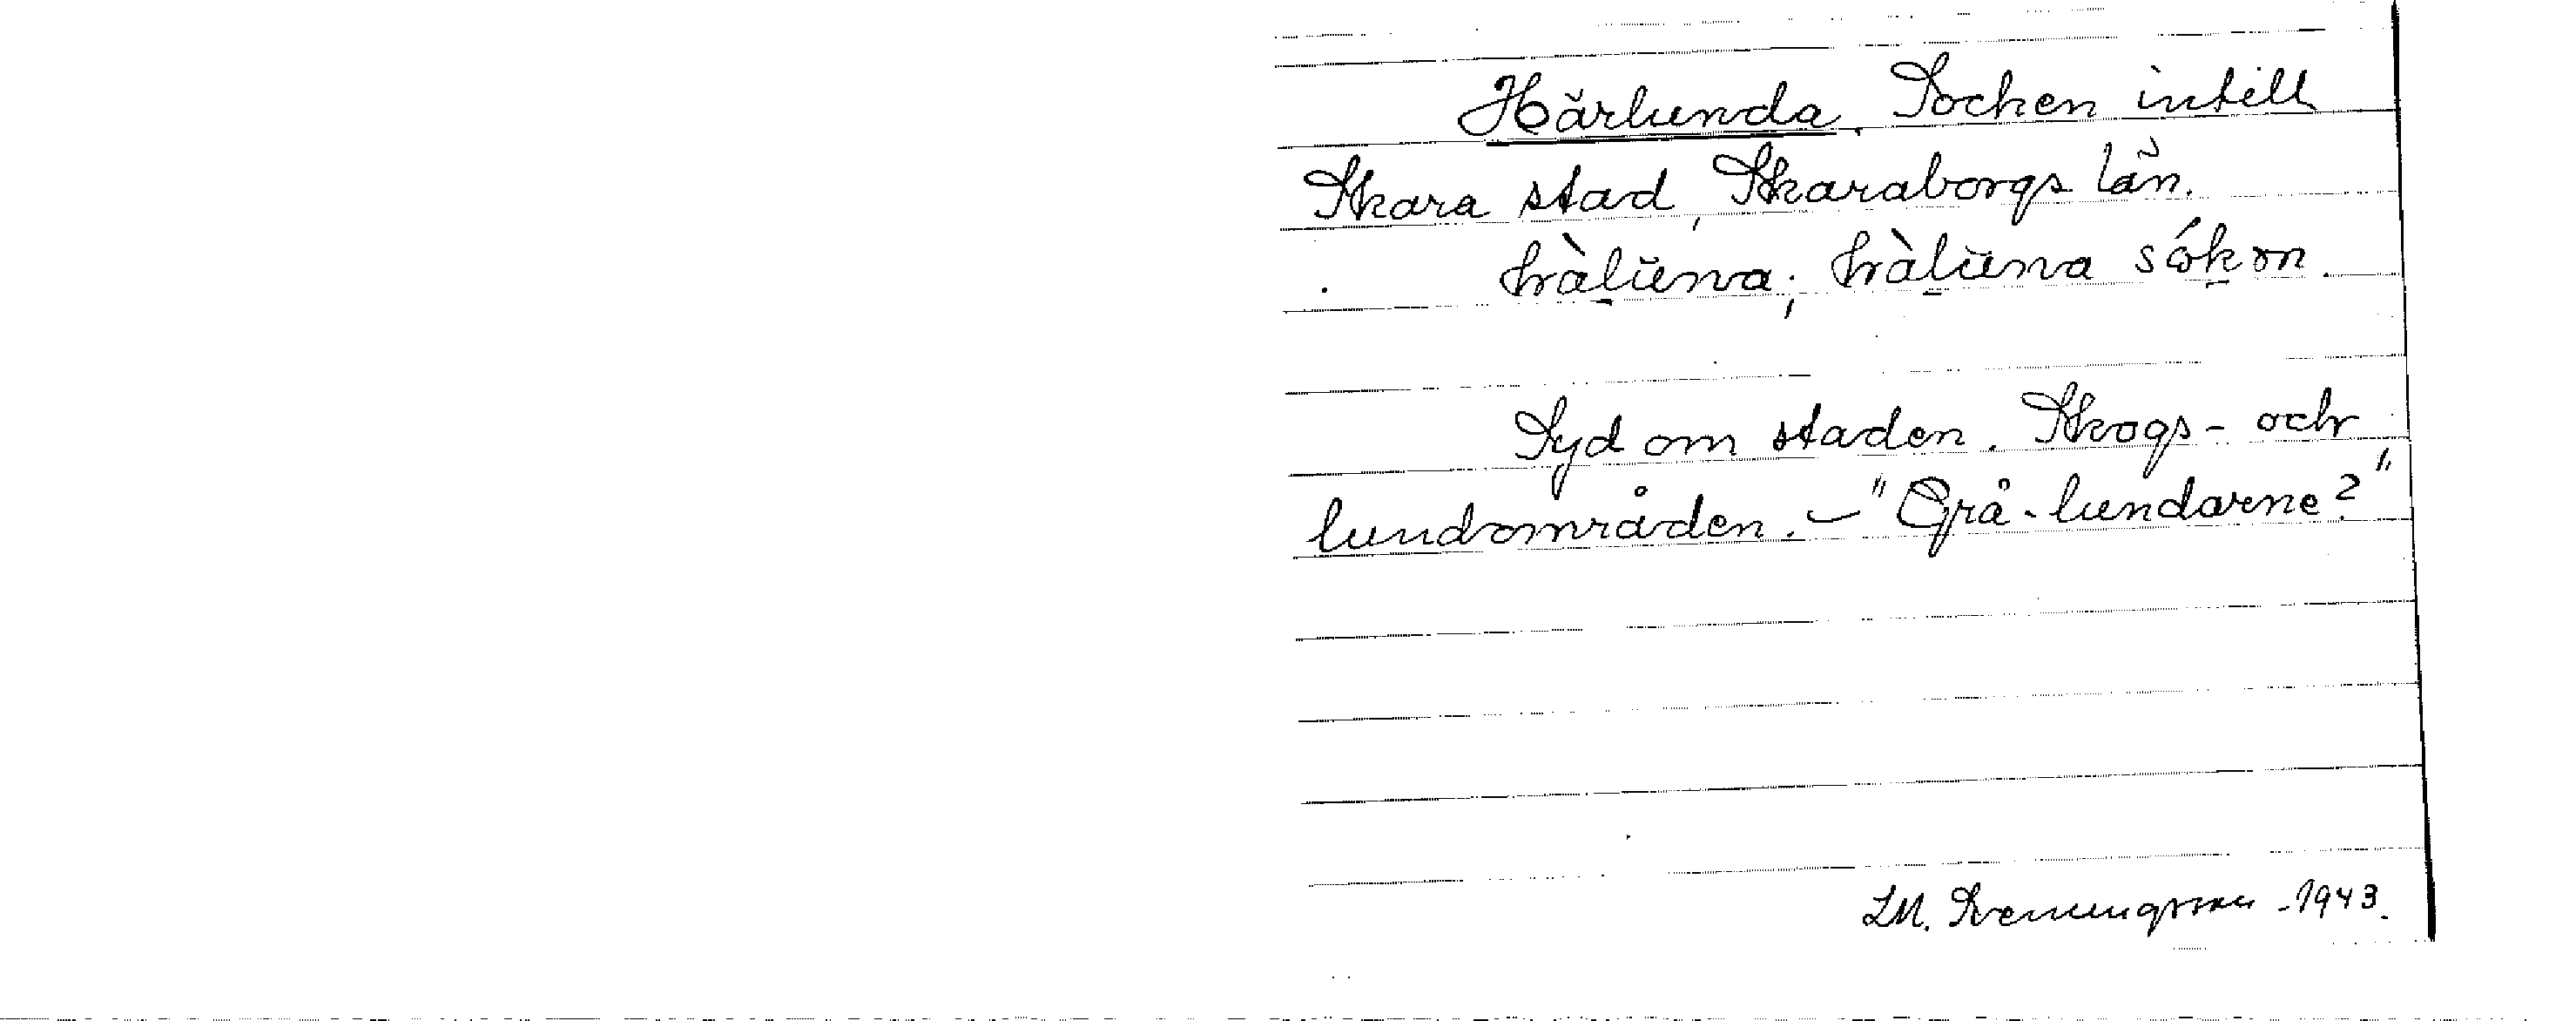 Härlunda. Socken intill
Skara stad, Skaraborgs län.
hàluna; hàluna sókon.
Syd om staden. Skogs- och
lundområden. – "Grå-lundarne?"
LM. Svenungsson -1943.